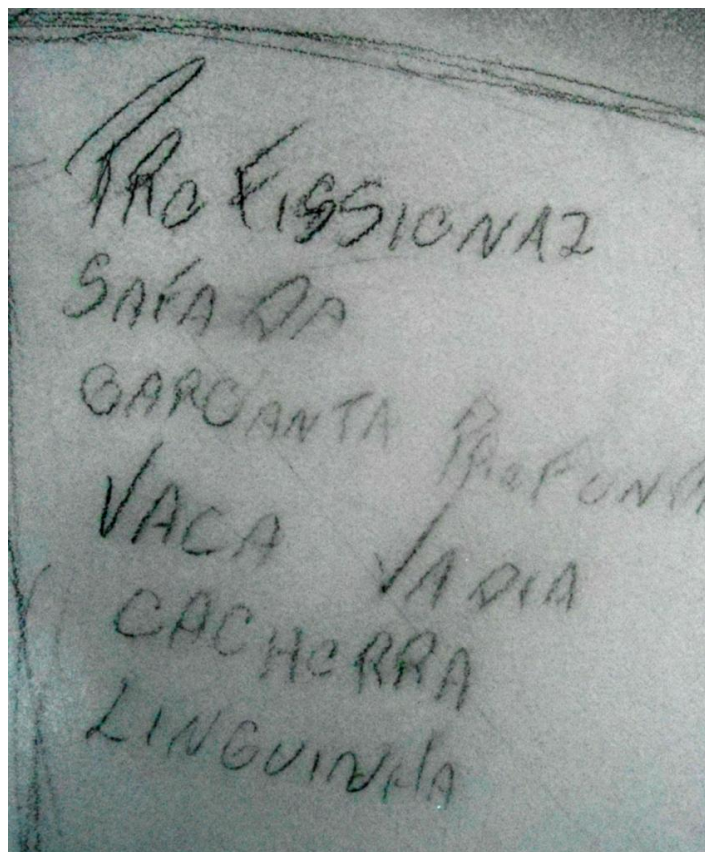 PROFISSIONAL
SAFADA
GARGANTA PROFUNDA
VACA VADIA
CACHORRA
LINGUINHA